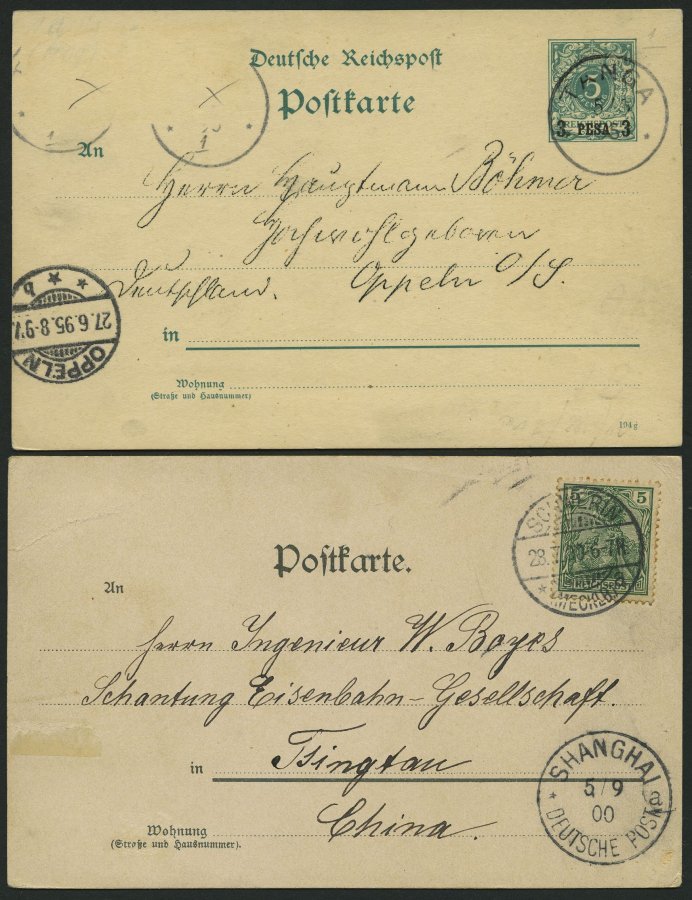 Deutsche Reichspost
Postkarte
5
3 PESA 3
TANGA
An
Herrn Hauptmann Böhmer
Hochwohlgeboren
Deutschland. Oppeln O/S.
b
27.6.95.8-9V.
OPPELN
in
Wohnung
(Straße und Hausnummer)
194g
Postkarte.
5 5
REICHSPOST
SCHWERIN
28
(MECKLB)
An
Herrn Ingenieur W. Boyes
Schantung Eisenbahn-Gesellschaft.
in Tsingtau
China.
Wohnung
(Straße und Hausnummer).
SHANGHAI
5/9
00
a
DEUTSCHE POST